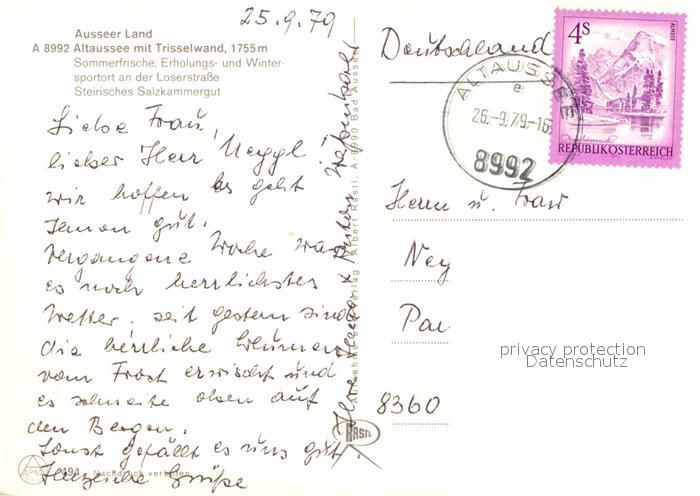 25.9.79
Ausseer Land
A 8992 Altaussee mit Trisselwand, 1755 m
Sommerfrische, Erholungs- und Winter-
sportort an der Loserstraße
Steirisches Salzkammergut
Liebe Frau,
lieber Herr
wir hoffen es geht
Ihnen gut.
Vergangene Woche war
es noch herrlichstes
Wetter. seit gestern sind
die herrliche Blumen
vom Frost erwischt und
es schneite oben auf
den Bergen.
Sonst gefällt es uns gut.
Herzliche Grüße
494 Nachdruck verboten
Verlag Albert Rastl, A-8990 Bad Aussee
RASTL
Deutschland
ALTAUSSEE
e
26.-9.79-16
8992
4S
ALMSEE
REPUBLIK ÖSTERREICH
Herrn u. Frau
Ney
Pau
8360
privacy protection
Datenschutz